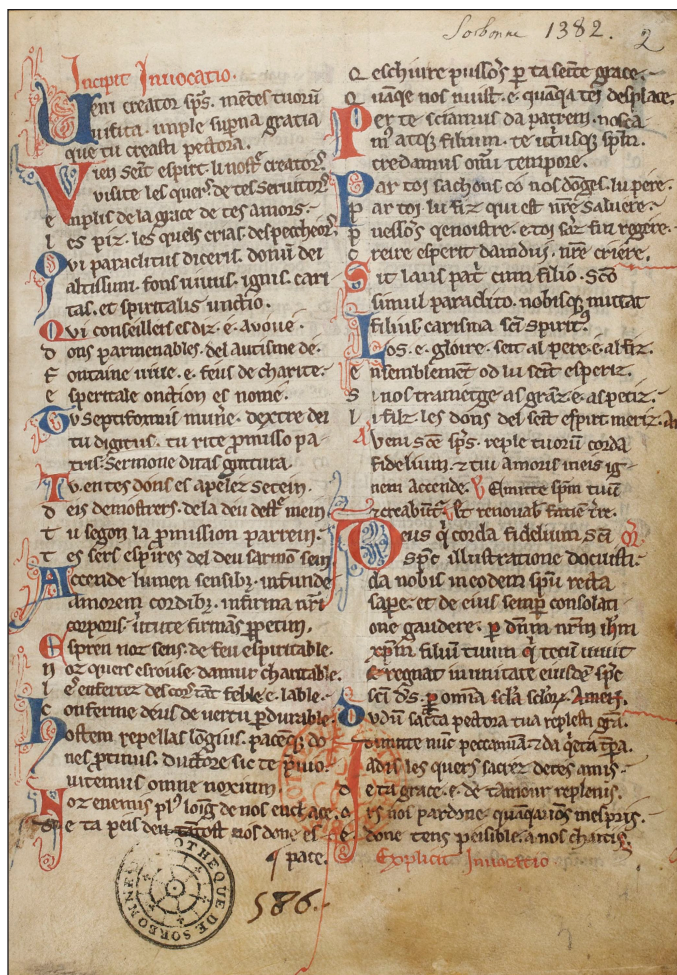 Sorbonne 1382.
2
Incipit Invocatio.
Veni creator sps. mẽtes tuorũ
visita. imple supna gratia
que tu creasti pectora.
Vien seĩt espirt. li nostr̃ creatorˢ
visite les querˢ de tes servitorˢ
emplis de la grace de tes amors.
les piz. les quels crias despecheorˢ
Qvi paraclitus diceris. donũ dei
altissimi. fons vivus. ignis. cari
tas. et spiritalis unctio.
Qvi conseillers es diz. e. avoué.
dons parmenables. del autisme de.
Fontaine vive. e. feus de charite.
esperitale onction es nomé.
Tv Septiformis mun̾e. dextre dei
tu digitus. tu rite ꝓmisso pa
tris. Sermone ditas guttura.
Tv. en tes dons es apelez Setein
deis demostrers. de la deu destr̃ mein
tu segon la ꝓmission parrein.
tes sers espires del deu sarmõ sein
Accende lumen sensibꝫ. infunde
amorem cordibꝫ. infirma nr̃i
corporis. v̾tute firmans ꝑpetim.
Espren noz sens. de feu espiritable.
noz quers esrouse damur charitable.
conferme deus de vertu ꝑdurable.
hostem repellas lõgius. pacẽqꝫ do
nes ꝓtinus. ductore sic te p̾vio.
vitemus omne noxium.
Noz enemis plˀ loing de nos enchace.
e ta peis deu tãtost nos done es
pace.
586.
BIBLIOTHEQUE DE SORBONNE
eschivre pussõs ꝑ ta seite grace.
Per te sciamus da patrem. nosca
mˀ atqꝫ filium. te utriusqꝫ spm̃.
credamus omĩ tempore.
Par toi sachons
par toi lu fiz qui est nr̃e salvere.
creire esperit damdui. nr̃e criere.
Sit laus patˡ cum filio. Sc̃o
simul paraclito. nobisqꝫ mittat
filius carisma sc̃i spiritˀ.
Los. e. gloire. seit al pere. e. al fiz.
ensemblement od lu seit esperiz.
li filz. les dons del seit espirt meriz. Am
Veni sc̃e sps. reple tuorũ corda
fidelium. ⁊ tui amoris in eis ig
nem accende. Emitte spm̃ tuũ
⁊ creabunt̃. Et renovab faciẽ t̾re.
Deus q̇ corda fidelium sc̃i
sps̃ illustratione docuisti.
da nobis in eodem spũ recta
sape. et de eius semꝑ consolati
one gaudere. ꝑ dñm nr̃m ihm̃
xpm̃ filiũ tuum q̇ tecũ vivit
⁊ regnat in unitate eiusdẽ sps̃
sc̃i ds̃. ꝑ omnia sc̃la sc̃loꝝ. Amen.
Dvdũ sac̾ta pectora tua replesti gra͂.
Jadis les quers sacrez de tes amis
de tu grace. e. de tamour replenis.
done tens peisible. a nos chaitis.
Explicit Invocatio